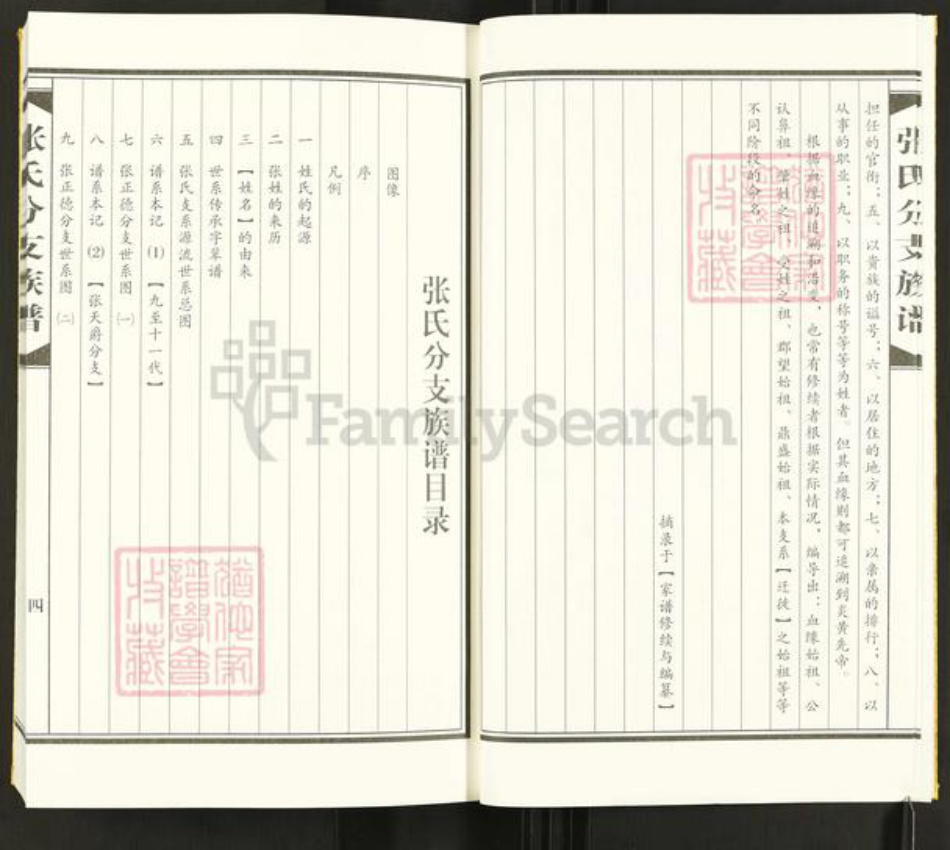 张氏分支族谱
担任的官衔；五、以贵族的谥号；六、以居住的地方；七、以亲属的排行；八、以
从事的职业；九、以职务的称号等等为姓者。但其血缘则都可追溯到炎黄先帝。
根据血缘的追溯和沿变，也常有修续者根据实际情况，编导出：血缘始祖、公
认鼻祖、肇姓之祖、受姓之祖、郡望始祖、鼎盛始祖、本支系【迁徙】之始祖等等
不同阶段的命名。
摘录于【家谱修续与编纂】
张氏分支族谱目录
图像
序
凡例
一 姓氏的起源
二 张姓的来历
三 【姓名】的由来
四 世系传承字辈谱
五 张氏支系源流世系总图
六 谱系本记 ⑴ 【九至十一代】
七 张正德分支世系图 ㈠
八 谱系本记 ⑵ 【张天爵分支】
九 张正德分支世系图 ㈡
张氏分支族谱
四
FamilySearch